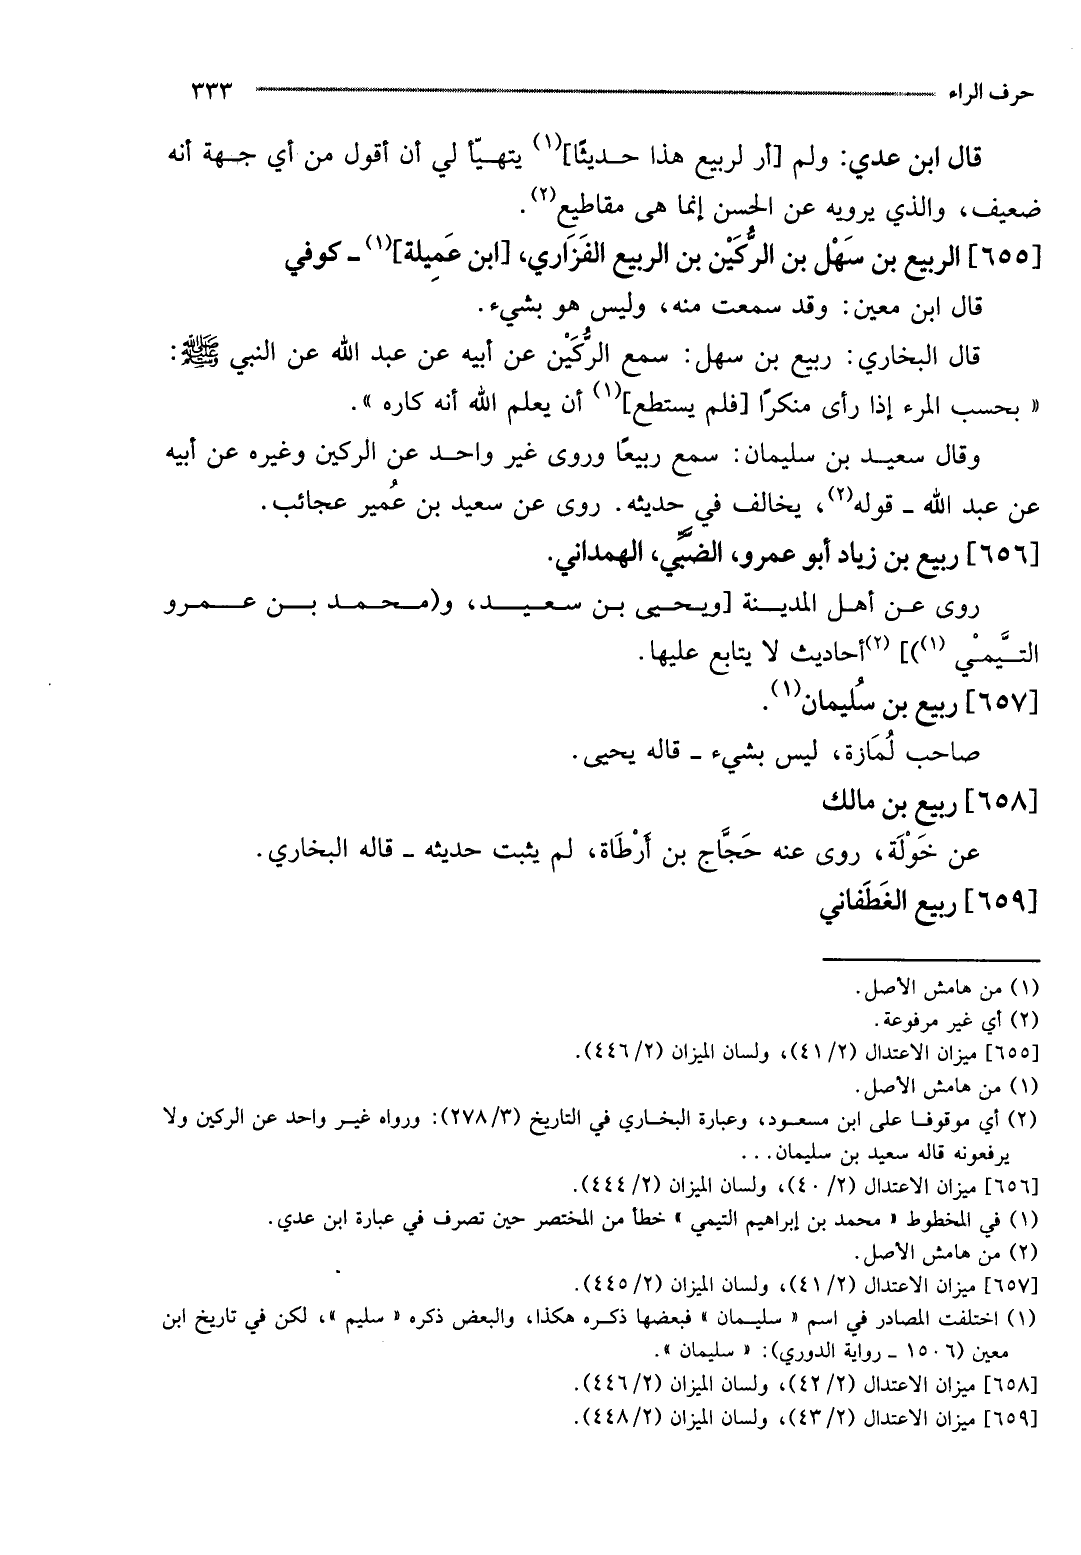 حرف الراء ٣٣٣
قال ابن عدي: ولم [أر لربيع هذا حديثًا](١) يتهيّأ لي أن أقول من أي جهة أنه
ضعيف، والذي يرويه عن الحسن إنما هى مقاطيع(٢).
[٦٥٥] الربيع بن سَهْل بن الرُّكَيْن بن الربيع الفَزَاري، [ابن عَمِيلة](١) ـ كوفي
قال ابن معين: وقد سمعت منه، وليس هو بشيء.
قال البخاري: ربيع بن سهل: سمع الرُّكَيْن عن أبيه عن عبد الله عن النبي ﷺ:
« بحسب المرء إذا رأى منكرًا [فلم يستطع](١) أن يعلم الله أنه كاره ».
وقال سعيد بن سليمان: سمع ربيعًا وروى غير واحد عن الركين وغيره عن أبيه
عن عبد الله ـ قوله(٢)، يخالف في حديثه. روى عن سعيد بن عُمير عجائب.
[٦٥٦] ربيع بن زياد أبو عمرو، الضبِّي، الهمداني.
روى عن أهل المدينة [ويحيى بن سعيد، و(محمد بن عمرو
التَّيمْي (١))] (٢)أحاديث لا يتابع عليها.
[٦٥٧] ربيع بن سُليمان(١).
صاحب لُمَازة، ليس بشيء ـ قاله يحيى.
[٦٥٨] ربيع بن مالك
عن خَوْلَة، روى عنه حَجَّاج بن أَرْطَاة، لم يثبت حديثه ـ قاله البخاري.
[٦٥٩] ربيع الغَطَفاني
(١) من هامش الأصل.
(٢) أي غير مرفوعة.
[٦٥٥] ميزان الاعتدال (٤١/٢)، ولسان الميزان (٤٤٦/٢).
(١) من هامش الأصل.
(٢) أي موقوفا على ابن مسعود، وعبارة البخاري في التاريخ (٢٧٨/٣): ورواه غير واحد عن الركين ولا
يرفعونه قاله سعيد بن سليمان...
[٦٥٦] ميزان الاعتدال (٤٠/٢)، ولسان الميزان (٤٤٤/٢).
(١) في المخطوط « محمد بن إبراهيم التيمي » خطأ من المختصر حين تصرف في عبارة ابن عدي.
(٢) من هامش الأصل.
[٦٥٧] ميزان الاعتدال (٤١/٢)، ولسان الميزان (٤٤٥/٢).
(١) اختلفت المصادر في اسم « سليمان » فبعضها ذكره هكذا، والبعض ذكره « سليم »، لكن في تاريخ ابن
معين (١٥٠٦ ـ رواية الدوري): « سليمان ».
[٦٥٨] ميزان الاعتدال (٤٢/٢)، ولسان الميزان (٤٤٦/٢).
[٦٥٩] ميزان الاعتدال (٤٣/٢)، ولسان الميزان (٤٤٨/٢).